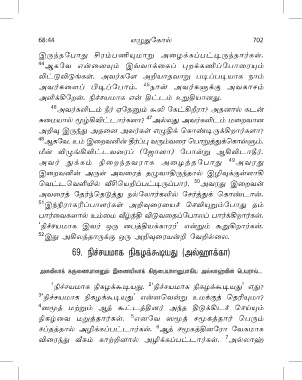 68:44 எழுதுகோல் 702
இருந்தபோது சிரம்பணியுமாறு அழைக்கப்பட்டிருந்தார்கள்.
44ஆகவே என்னையும் இவ்வாக்கைப் புறக்கணிப்போரையும்
விட்டுவிடுங்கள். அவர்களே அறியாதவாறு படிப்படியாக நாம்
அவர்களைப் பிடிப்போம். 45நான் அவர்களுக்கு அவகாசம்
அளிக்கிறேன். நிச்சயமாக என் திட்டம் உறுதியானது.
46அவர்களிடம் நீர் ஏதேனும் கூலி கேட்கிறீரா? அதனால் கடன்
சுமையால் மூழ்கிவிட்டார்களா? 47அல்லது அவர்களிடம் மறைவான
அறிவு இருந்து அதனை அவர்கள் எழுதிக் கொண்டிருக்கிறார்களா?
48ஆகவே, உம் இறைவனின் தீர்ப்பு வரும்வரை பொறுத்துக்கொள்வீராக.
மீன் விழுங்கிவிட்டவரைப் (நோவாப்) போன்று ஆகிவிடாதீர்.
அவர் துக்கம் நிறைந்தவராக அழைத்தபோது 49அவரது
இறைவனின் அருள் அவரைத் தழுவாதிருந்தால் இழிவுக்குள்ளாகி
வெட்டவெளியில் வீசியெறியப்பட்டிருப்பார். 50அவரது இறைவன்
அவரைத் தேர்ந்தெடுத்து நல்லோர்களில் சேர்த்துக் கொண்டான்.
51இந்நிராகரிப்பாளர்கள் அறிவுரையைச் செவியுறும்போது தம்
பார்வைகளால் உம்மை வீழ்த்தி விடுவதைப்போலப் பார்க்கிறார்கள்.
'நிச்சயமாக இவர் ஒரு பைத்தியக்காரர்' என்றும் கூறுகிறார்கள்.
52இது அகிலத்தாருக்கு ஒரு அறிவுரையன்றி வேறில்லை.
69. நிச்சயமாக நிகழக்கூடியது (அல்ஹாக்கா)
அளவிலாக் கருணையாளனும் இணையிலாக் கிருபையாளனுமாகிய அல்லாஹ்வின் பெயரால்...
1நிச்சயமாக நிகழக்கூடியது. 2'நிச்சயமாக நிகழக்கூடியது' எது?
3'நிச்சயமாக நிகழக்கூடியது' என்னவென்று உமக்குத் தெரியுமா?
4ஸமூத் மற்றும் ஆத் கூட்டத்தினர் அந்த திடுக்கிடச் செய்யும்
நிகழ்வை மறுத்தார்கள். 5எனவே ஸமூத் சமூகத்தார் பெரும்
சப்தத்தால் அழிக்கப்பட்டார்கள். 6ஆத் சமூகத்தினரோ வேகமாக
விரைந்து வீசும் காற்றினால் அழிக்கப்பட்டார்கள். 7அல்லாஹ்